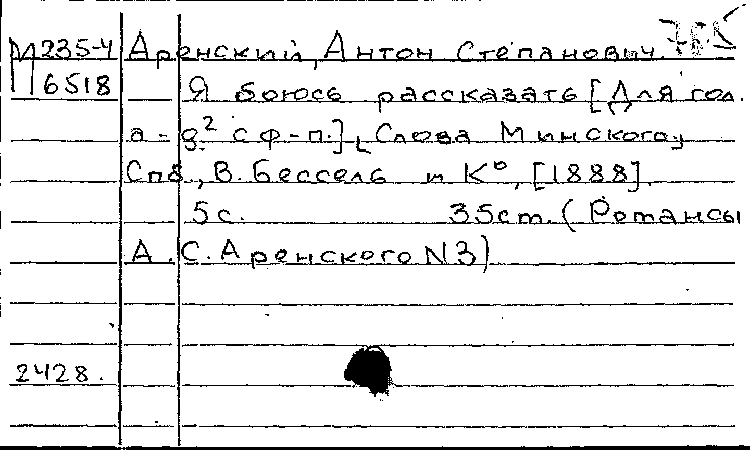 М 235-4 Аренский, Антон Степанович.
6518 Я боюсь рассказать [Для гол.
а-g² с ф-п.], [Слова Минского]
Спб., В. Бессель и К°, [1888].
5 с. 35 ст. (Романсы
А. С. Аренского N 3)
2428.